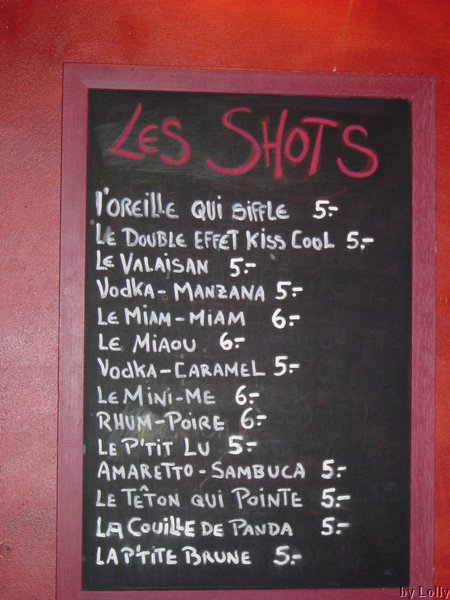 LES SHOTS
l'OREILLE QUI SIFFLE 5.-
LE DOUBLE EFFET KISS COOL 5.-
LE VALAISAN 5.-
VODKA-MANZANA 5.-
LE MIAM-MIAM 6.-
LE MIAOU 6.-
VODKA-CARAMEL 5.-
LE MINI-ME 6.-
RHUM-POIRE 6.-
LE P'TIT LU 5.-
AMARETTO-SAMBUCA 5.-
LE TÊTON QUI POINTE 5.-
LA COUILLE DE PANDA 5.-
LA P'TITE BRUNE 5.-
by Lolly